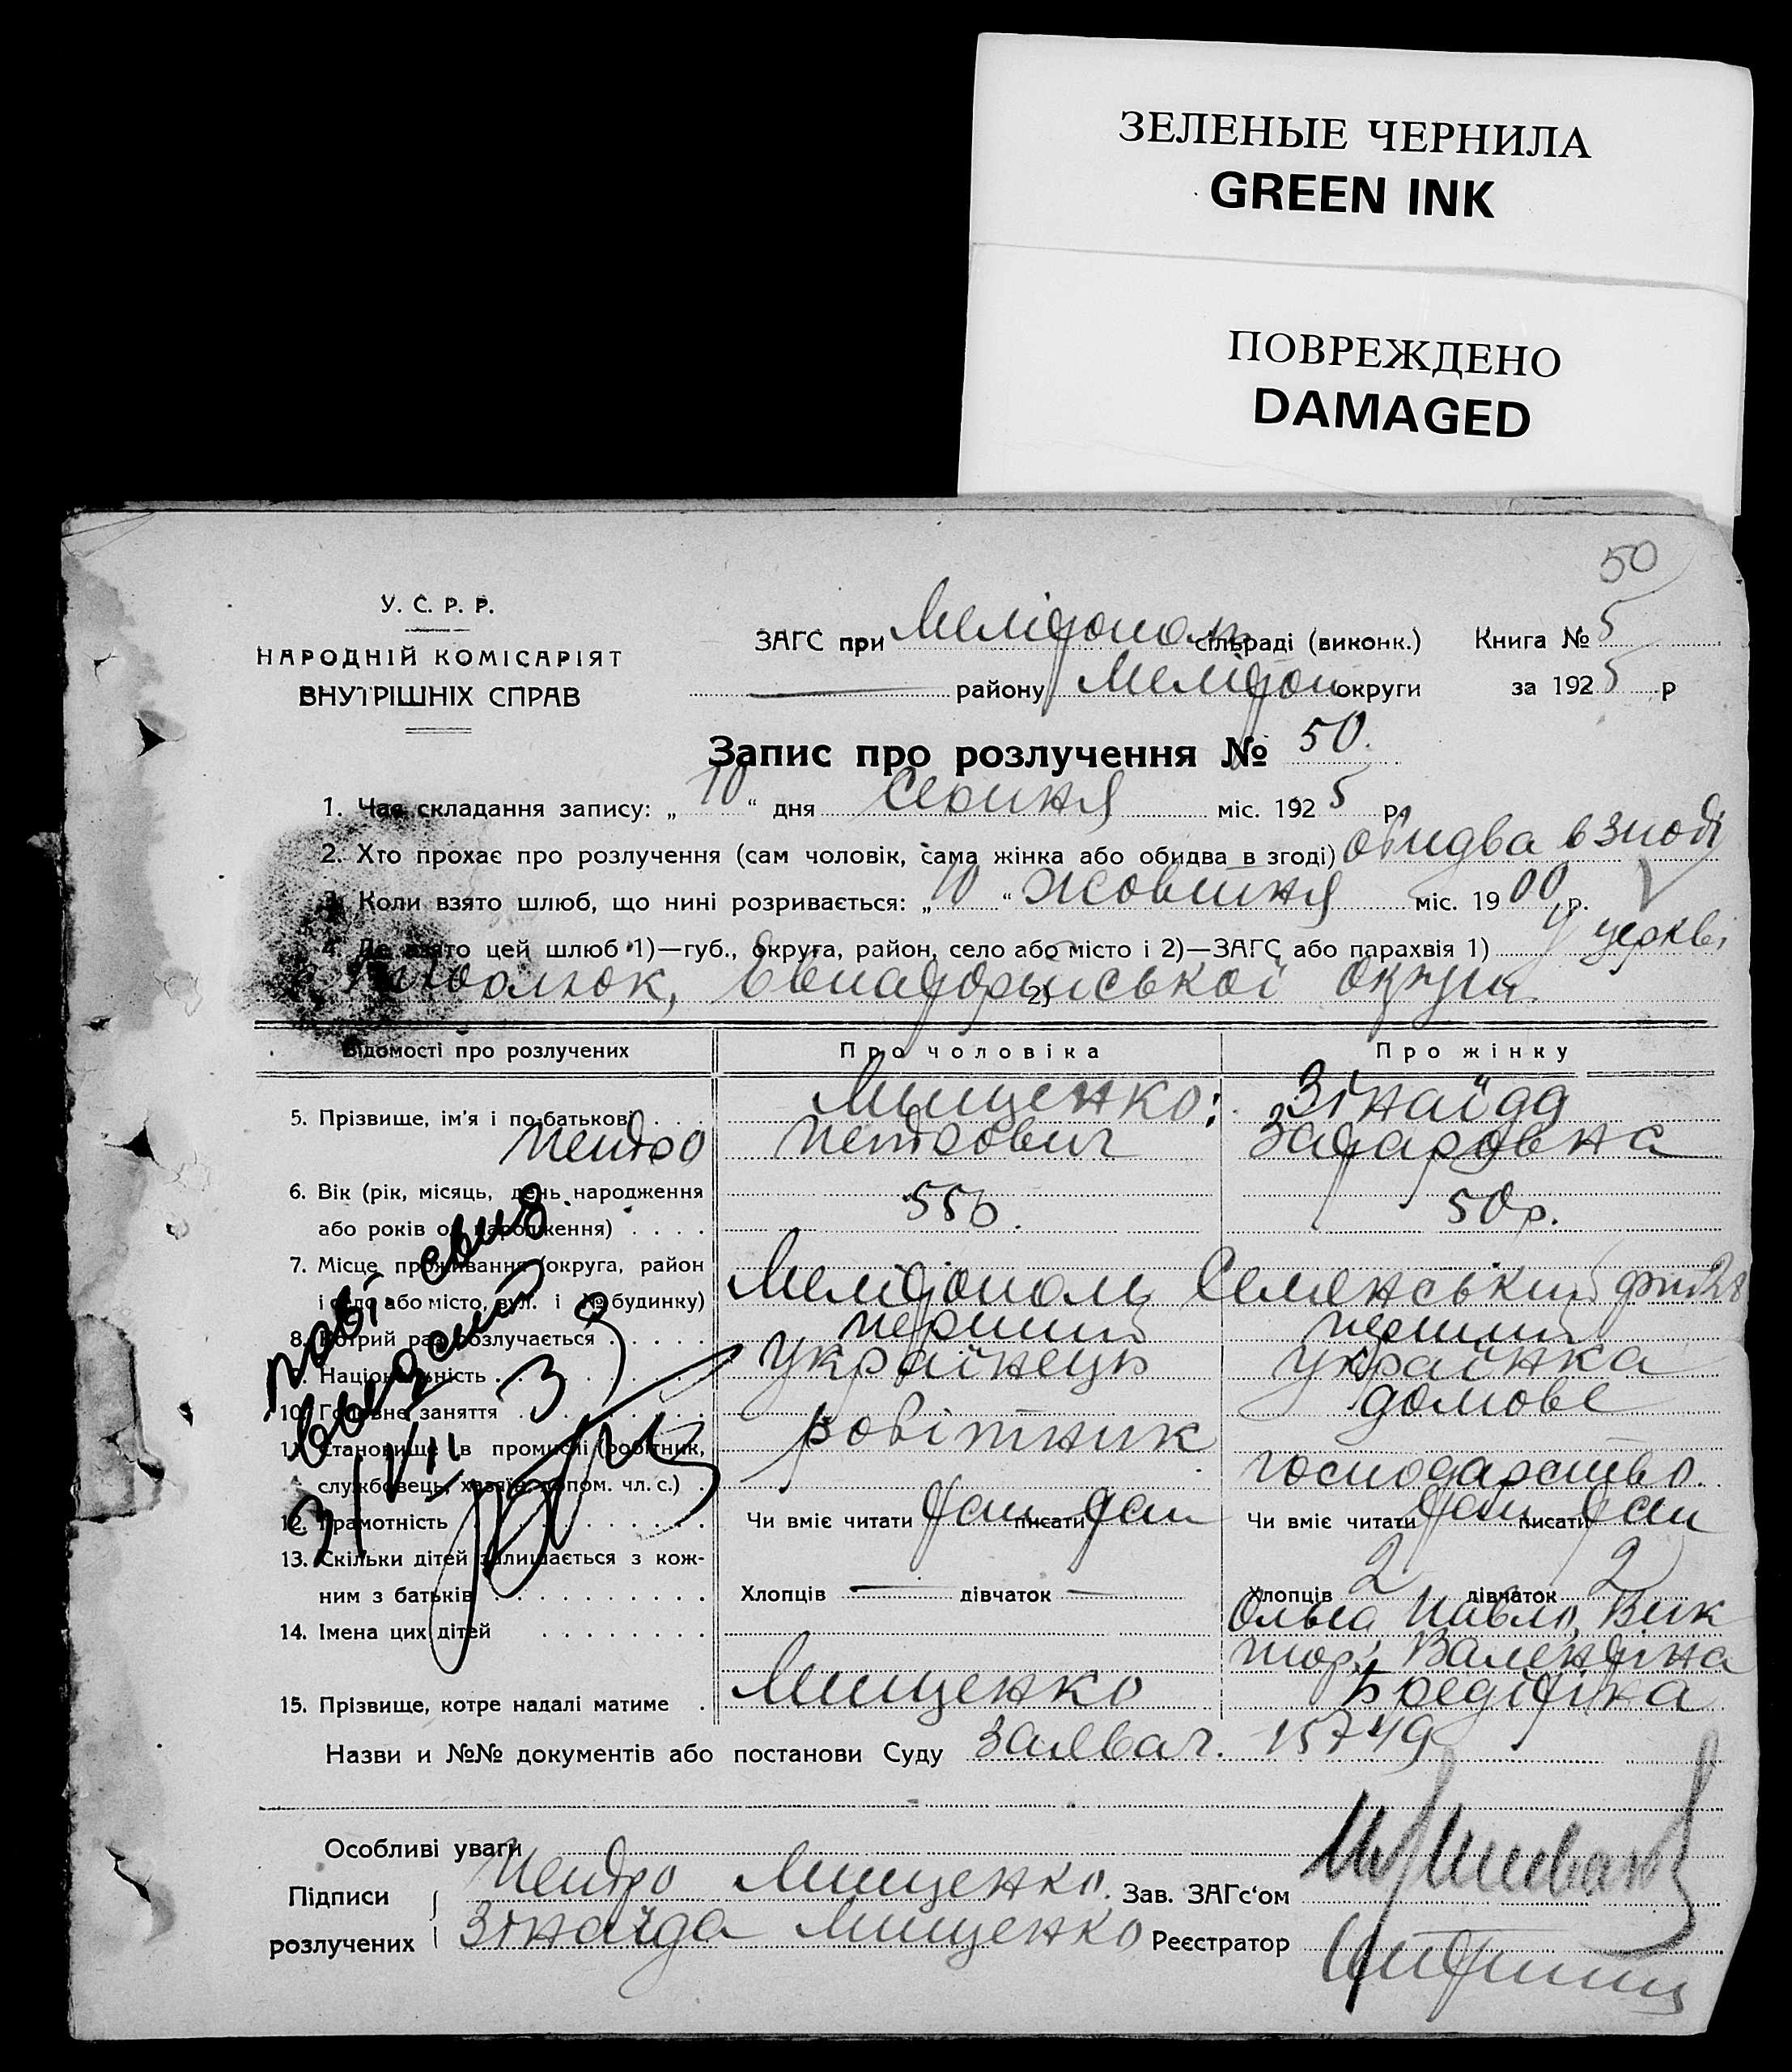 ЗЕЛЕНЫЕ ЧЕРНИЛА
GREEN INK
ПОВРЕЖДЕНО
DAMAGED
50
У. С. Р. Р.
НАРОДНІЙ КОМІСАРІЯТ
ВНУТРІШНІХ СПРАВ
ЗАГС при Мелітополь сільраді (виконк.) Книга № 5
району Мелітоп округи за 1925 р
Запис про розлучення № 50.
1. Час складання запису: „10“ дня Серпня міс. 1925 р.
2. Хто прохає про розлучення (сам чоловік, сама жінка або обидва в згоді) обидва в згоді
3. Коли взято шлюб, що нині розривається: „10“ Жовтня міс. 1900 р.
4. Де взято цей шлюб 1)—губ., округа, район, село або місто і 2)—ЗАГС або парахвія 1) У церкві
2) округи
Відомості про розлучених Про чоловіка Про жінку
5. Прізвище, ім'я і по-батькові Мищенко: Зінаїда
Петро Петрович Захаровна
6. Вік (рік, місяць, день народження
або років од народження) 55р. 50р.
7. Місце проживання (округа, район
і село або місто, вул. і № будинку) Мелітополь Семенський 28
8. Котрий раз розлучається перший перший
9. Національність Українець українка
10. Головне заняття домове
11. Становище в промислі (робітник, робітник
службовець, хазяїн, допом. чл. с.) господарство.
12. Грамотність Чи вміє читати так писати так Чи вміє читати так писати так
13. Скільки дітей залишається з кож-
ним з батьків Хлопців — дівчаток — Хлопців 2 дівчаток 2
14. Імена цих дітей Ольга, Павло, Вик
тор, Валентіна
15. Прізвище, котре надалі матиме Мищенко
Назви и №№ документів або постанови Суду 15749
Особливі уваги
Підписи Петро Мищенко. Зав. ЗАГс'ом
розлучених Зінаїда Мищенко Реєстратор